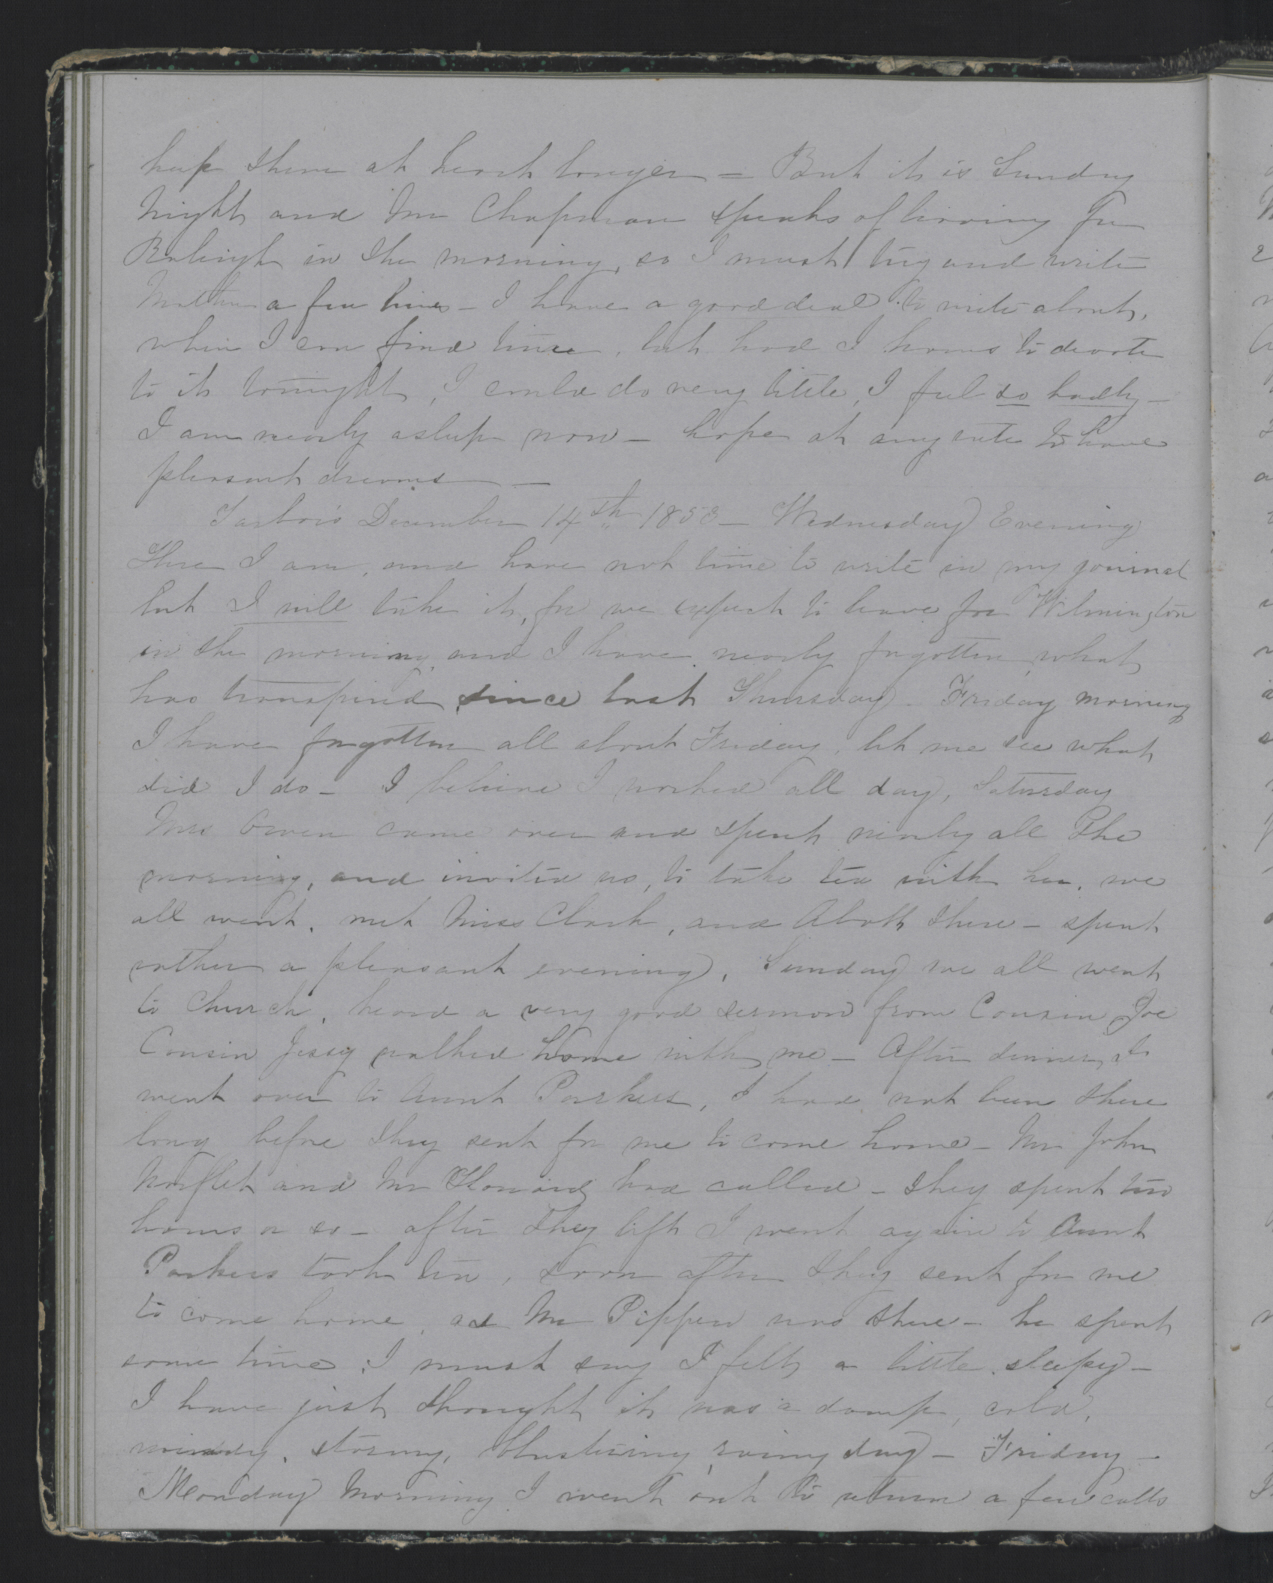 keep them at work longer – But it is Sunday
Night and Mr Chapman speaks of leaving for
Raleigh in the morning, so I must try and write
Mother a few lines – I have a good deal to write about,
when I can find time, but had I hours to devote
to it tonight, I could do very little, I feel so badly –
I am nearly asleep now – hope at any rate to have
pleasant dreams –
Tarboro December 14th 1853 – Wednesday Evening
Here I am, and have not time to write in my journal
but I will take it, for we expect to leave for Wilmington
in the morning, and I have nearly forgotten what
has transpired since last Thursday. Friday morning
I have forgotten all about Friday, let me see what
did I do – I believe I worked all day, Saturday
Mrs Owen came over and spent nearly all the
morning, and invited us, to take tea with her, we
all went, met Miss Clark, and Abott there – spent
rather a pleasant evening, Sunday we all went
to Church, heard a very good sermon from Cousin Joe
Cousin Jessy walked home with me – After dinner, I
went over to Aunt Parkers, I had not been there
long before they sent for me to come home – Mr John
Norflet and Mr Howard had called – they spent two
hours or so – after they left I went again to Aunt
Parkers took tea, soon after they sent for me
to come home, as Mr Pippen was there – he spent
some time. I must say I felt a little sleepy –
I have just thought it was a damp, cold,
windy, stormy, blustering rainy day – Friday –
Monday Morning I went out to return a few calls